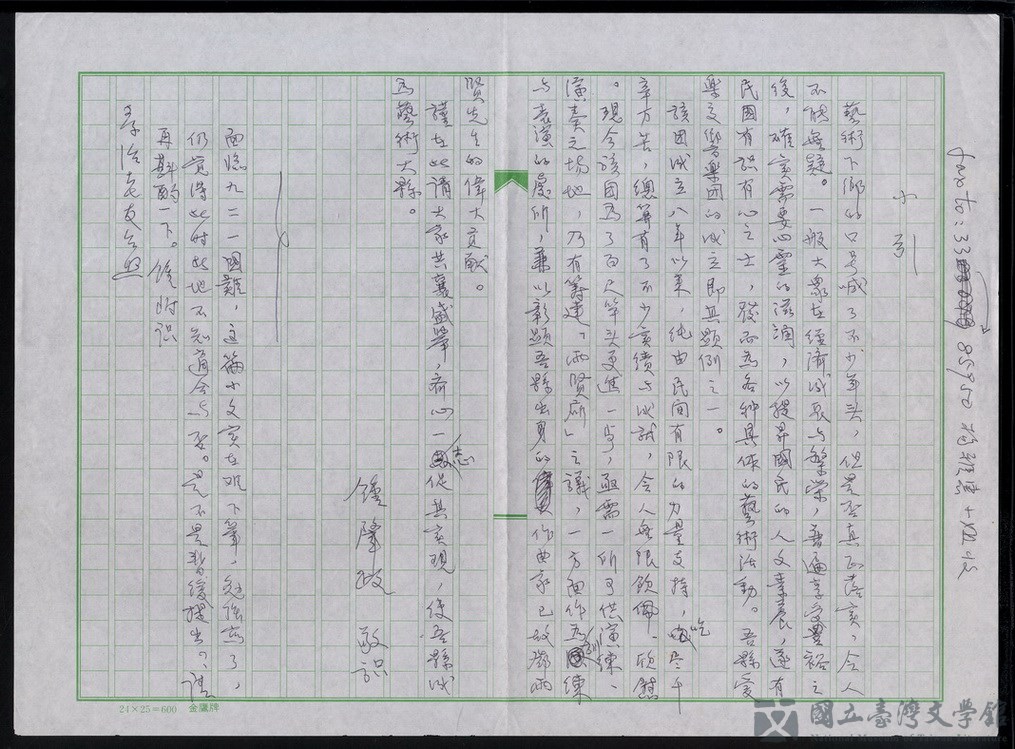 小引
藝術下鄉的口号喊了不少年头，但是否真正落实，令人
不能無疑。一般大眾在經濟成長与繁榮，普遍享受豐裕之
後，確实需要心靈的滋潤，以提昇國民的人文素養，遂有
民間有識有心之士，發而為各种具体的藝術活動。吾縣愛
樂交響樂团的成立即其顯例之一。
該团成立八年以來，純由民間有限的力量支持，吃尽千
辛万苦，總算有了不少实績与成就，令人無限欽佩、欣慰
。現今該团為了百尺竿头更進一步，亟需一所可供演練、
演奏之場地，乃有籌建「雨賢廳」之議，一方面作為訓練
与表演的處所，兼以彰顯吾縣出身的作曲家已故鄧雨
賢先生的偉大貢献。
謹在此請大家共襄盛舉，齐心一志促其实現，使吾縣成
為藝術大縣。
鍾肇政 敬识
面临九二一國難，這篇小文实在难下筆，勉強寫了，
仍覚得此时此地不知適合与否。是不是暫緩提出？請
再斟酌一下。 後附识
李治老友公照
fax to: 33 85850
24×25=600 金鷹牌
國立臺灣文學館